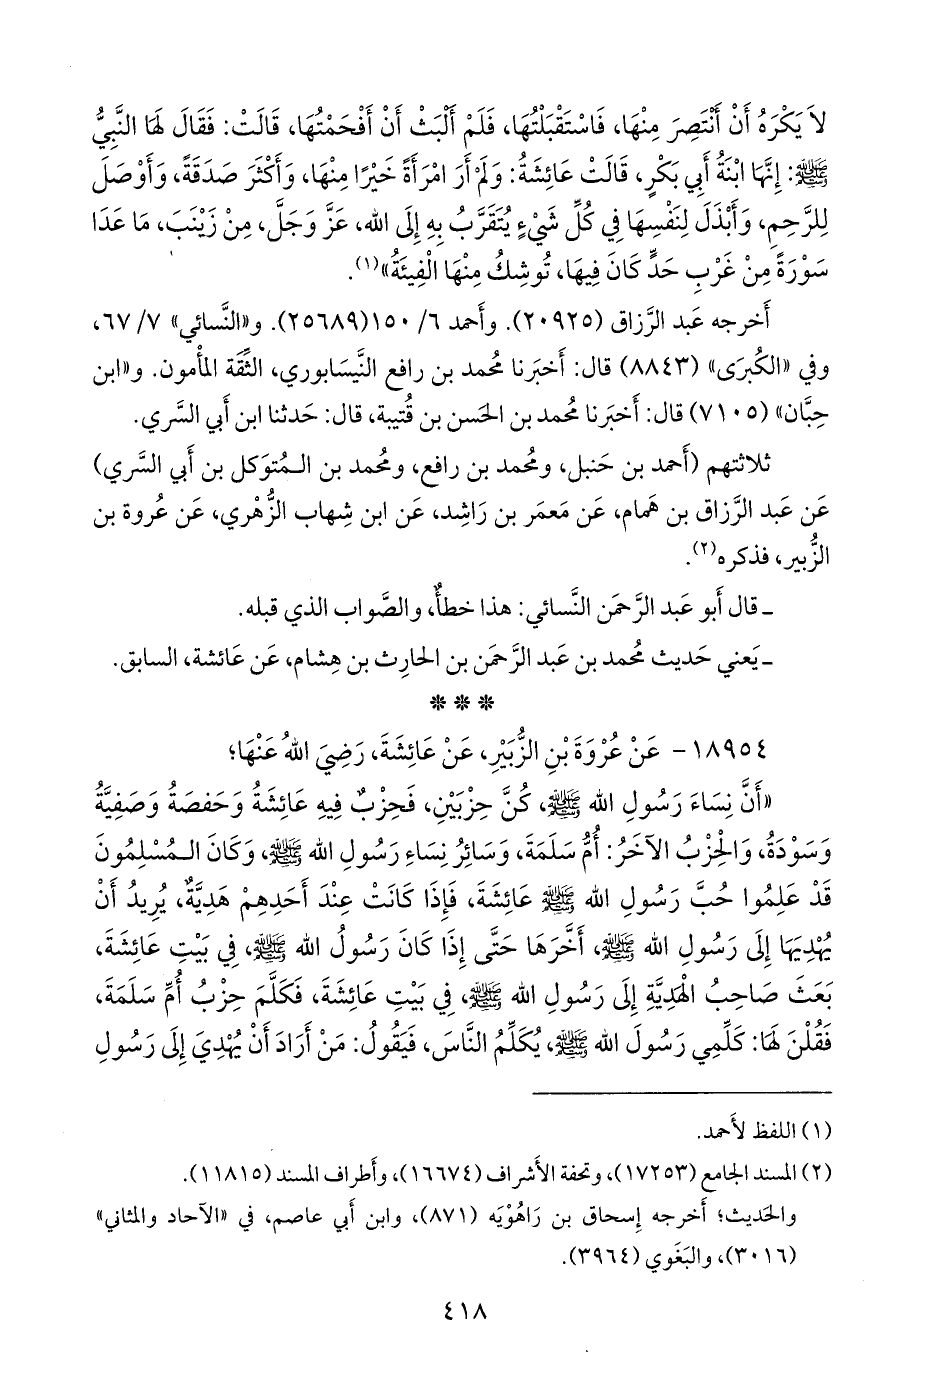 لاَ يَكْرَهُ أَنْ أَنْتَصِرَ مِنْهَا، فَاسْتَقْبَلْتُهَا، فَلَمْ أَلْبَثْ أَنْ أَفْحَمْتُهَا، قَالَتْ: فَقَالَ لَهَا النَّبِيُّ
ﷺ: إِنَّهَا ابْنَةُ أَبِي بَكْرٍ، قَالَتْ عَائِشَةُ: وَلَمْ أَرَ امْرَأَةً خَيْرًا مِنْهَا، وَأَكْثَرَ صَدَقَةً، وَأَوْصَلَ
لِلرَّحِمِ، وَأَبْذَلَ لِنَفْسِهَا فِي كُلِّ شَيْءٍ يُتَقَرَّبُ بِهِ إِلَى الله، عَزَّ وَجَلَّ، مِنْ زَيْنَبَ، مَا عَدَا
سَوْرَةً مِنْ غَرْبِ حَدٍّ كَانَ فِيهَا، تُوشِكُ مِنْهَا الْفِيئَةُ»(١).
أَخرجه عَبد الرَّزاق (٢٠٩٢٥). وأَحمد ٦/ ١٥٠(٢٥٦٨٩). و«النَّسائي» ٧/ ٦٧،
وفي «الكُبرَى» (٨٨٤٣) قال: أَخبَرنا مُحمد بن رافع النَّيسَابوري، الثِّقة المأْمون. و«ابن
حِبَّان» (٧١٠٥) قال: أَخبَرنا مُحمد بن الحَسن بن قُتيبة، قال: حَدثنا ابن أَبي السَّري.
ثلاثتهم (أَحمد بن حَنبل، ومُحمد بن رافع، ومُحمد بن الـمُتوَكل بن أَبي السَّري)
عَن عَبد الرَّزاق بن هَمام، عَن مَعمَر بن رَاشِد، عَن ابن شِهاب الزُّهْري، عَن عُروة بن
الزُّبير، فذكره(٢).
ـ قال أَبو عَبد الرَّحمَن النَّسائي: هذا خطأٌ، والصَّواب الذي قبله.
ـ يَعني حَديث مُحمد بن عَبد الرَّحمَن بن الحارِث بن هِشام، عَن عَائشة، السابق.
* * *
١٨٩٥٤- عَنْ عُرْوَةَ بْنِ الزُّبَيْرِ، عَنْ عَائِشَةَ، رَضِيَ اللهُ عَنْهَا؛
«أَنَّ نِسَاءَ رَسُولِ الله ﷺ، كُنَّ حِزْبَيْنِ، فَحِزْبٌ فِيهِ عَائِشَةُ وَحَفصَةُ وَصَفِيَّةُ
وَسَوْدَةُ، وَالْحِزْبُ الآخَرُ: أُمُّ سَلَمَةَ، وَسَائِرُ نِسَاءِ رَسُولِ الله ﷺ، وَكَانَ الـمُسْلِمُونَ
قَدْ عَلِمُوا حُبَّ رَسُولِ الله ﷺ عَائِشَةَ، فَإِذَا كَانَتْ عِنْدَ أَحَدِهِمْ هَدِيَّةٌ، يُرِيدُ أَنْ
يُهْدِيَهَا إِلَى رَسُولِ الله ﷺ، أَخَّرَهَا حَتَّى إِذَا كَانَ رَسُولُ الله ﷺ، فِي بَيْتِ عَائِشَةَ،
بَعَثَ صَاحِبُ الْهَدِيَّةِ إِلَى رَسُولِ الله ﷺ، فِي بَيْتِ عَائِشَةَ، فَكَلَّمَ حِزْبُ أُمِّ سَلَمَةَ،
فَقُلْنَ لَهَا: كَلِّمِي رَسُولَ الله ﷺ، يُكَلِّمُ النَّاسَ، فَيَقُولُ: مَنْ أَرَادَ أَنْ يُهْدِيَ إِلَى رَسُولِ
(١) اللفظ لأَحمد.
(٢) المسند الجامع (١٧٢٥٣)، وتحفة الأَشراف (١٦٦٧٤)، وأَطراف المسند (١١٨١٥).
والحَديث؛ أَخرجه إِسحاق بن رَاهُوْيَه (٨٧١)، وابن أَبي عاصم، في «الآحاد والمثاني»
(٣٠١٦)، والبَغَوي (٣٩٦٤).
٤١٨